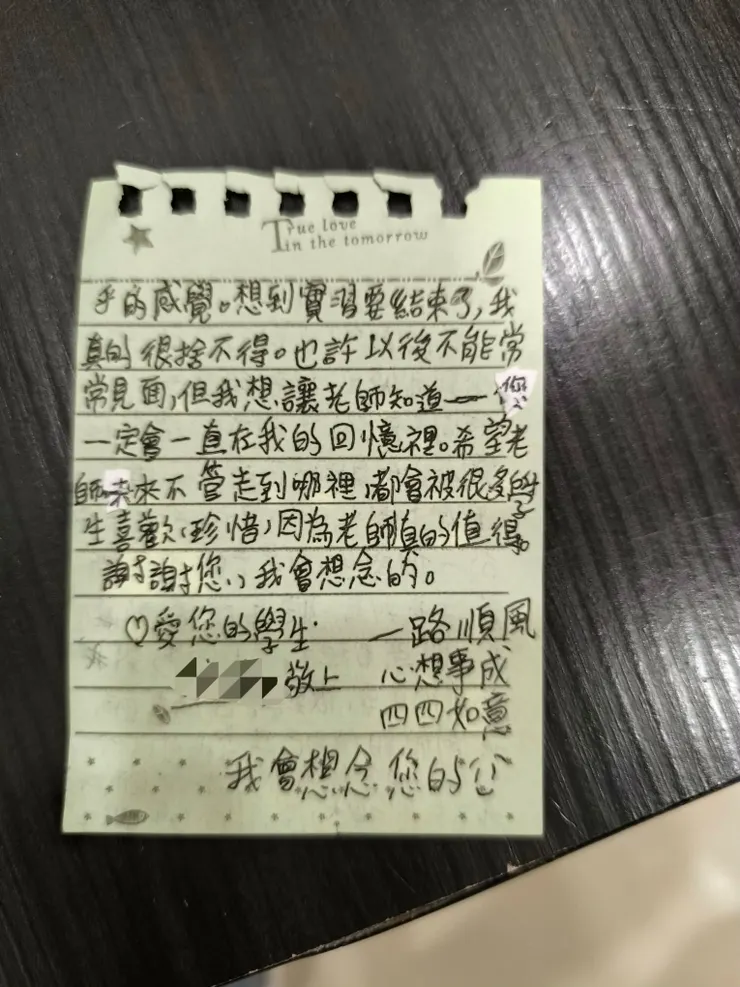 True love
in the tomorrow
乎的感覺。想到實習要結束了,我
真的很捨不得。也許以後不能常
常見面,但我想讓老師知道一您
一定會一直在我的回憶裡。希望老
師未來不管走到哪裡,都會被很多的學
生喜歡、珍惜,因為老師真的值得。
謝謝您,我會想念的。
♡愛您的學生 一路順風
敬上 心想事成
四四如意
我會想念您的